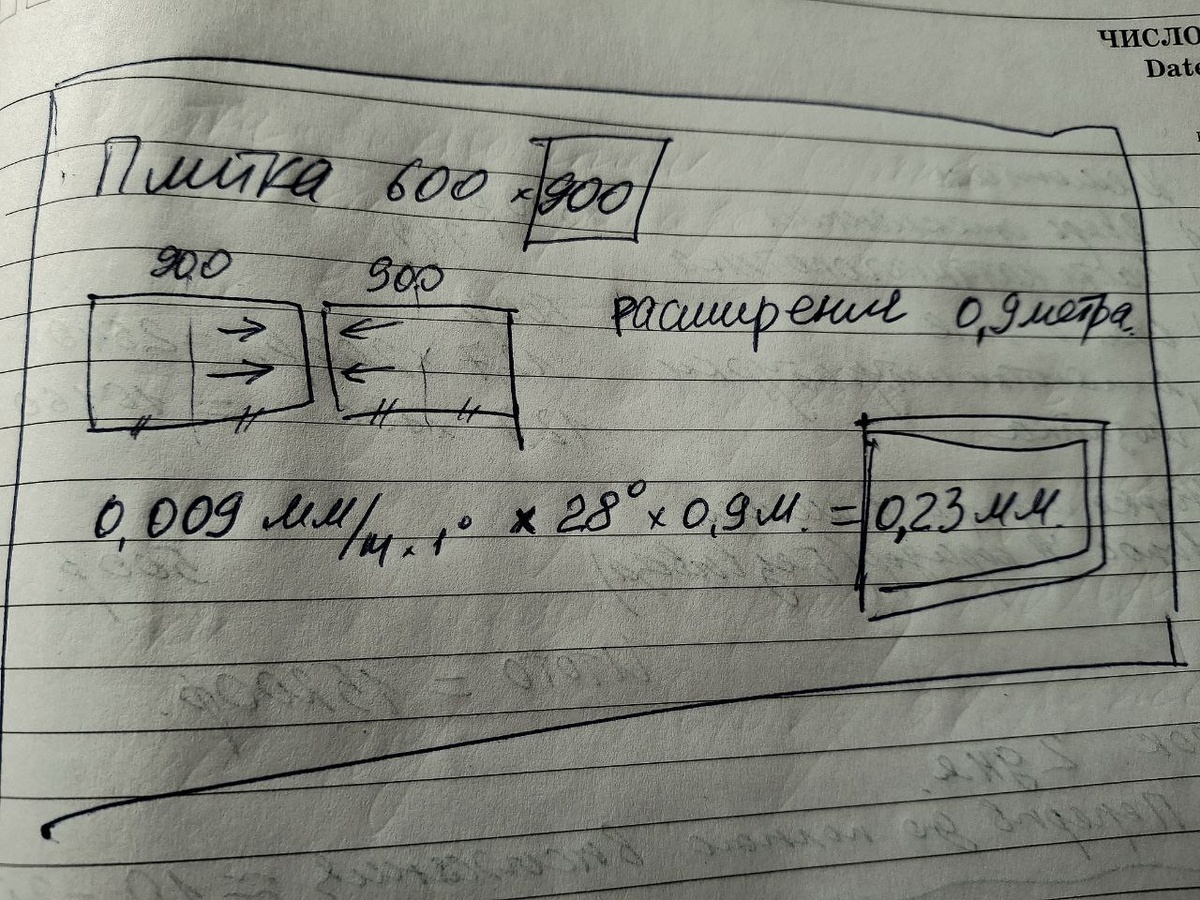 ЧИСЛО
Date
Плитка 600 × 900
900 900
расширение 0,9 метра.
0,009 мм/м × 1° × 28° × 0,9 м. = 0,23 мм.